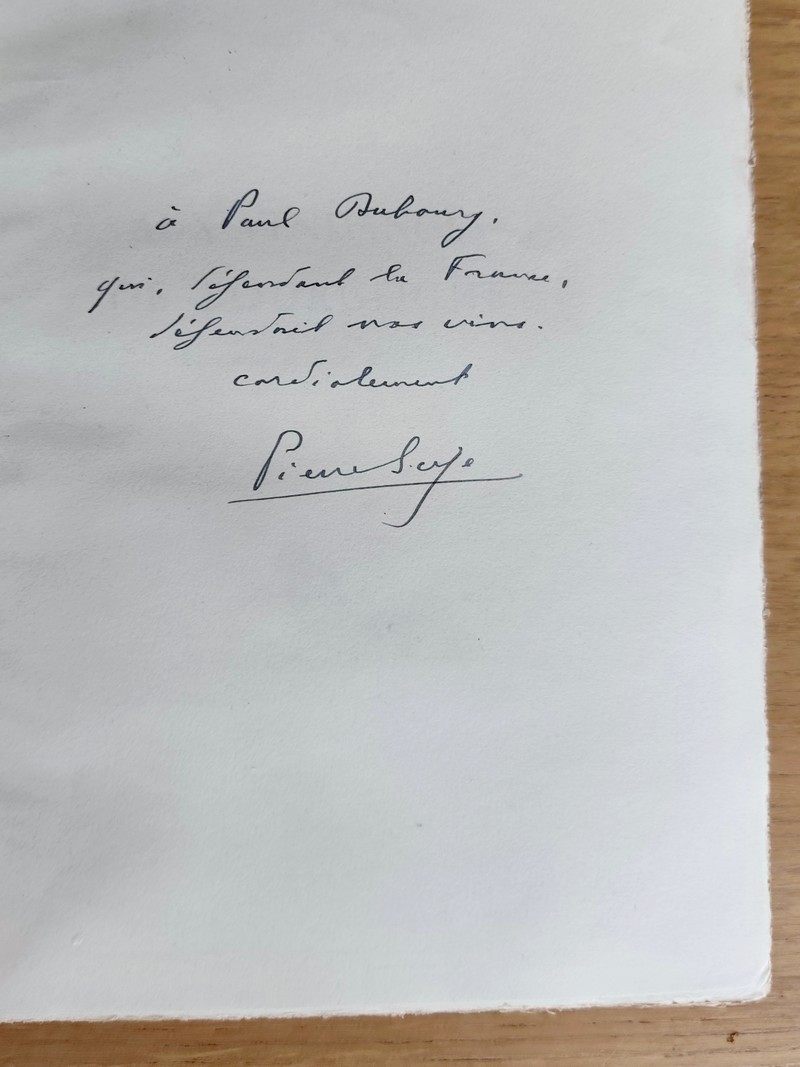 à Paul Dubourg,
qui, défendant la France,
défendait nos vins.
cordialement
Pierre